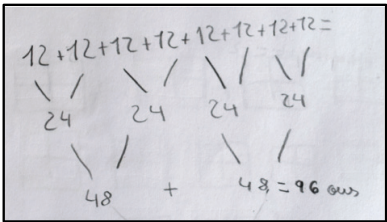 12+12+12+12+12+12+12+12=
24 24 24 24
48 + 48 = 96 ous